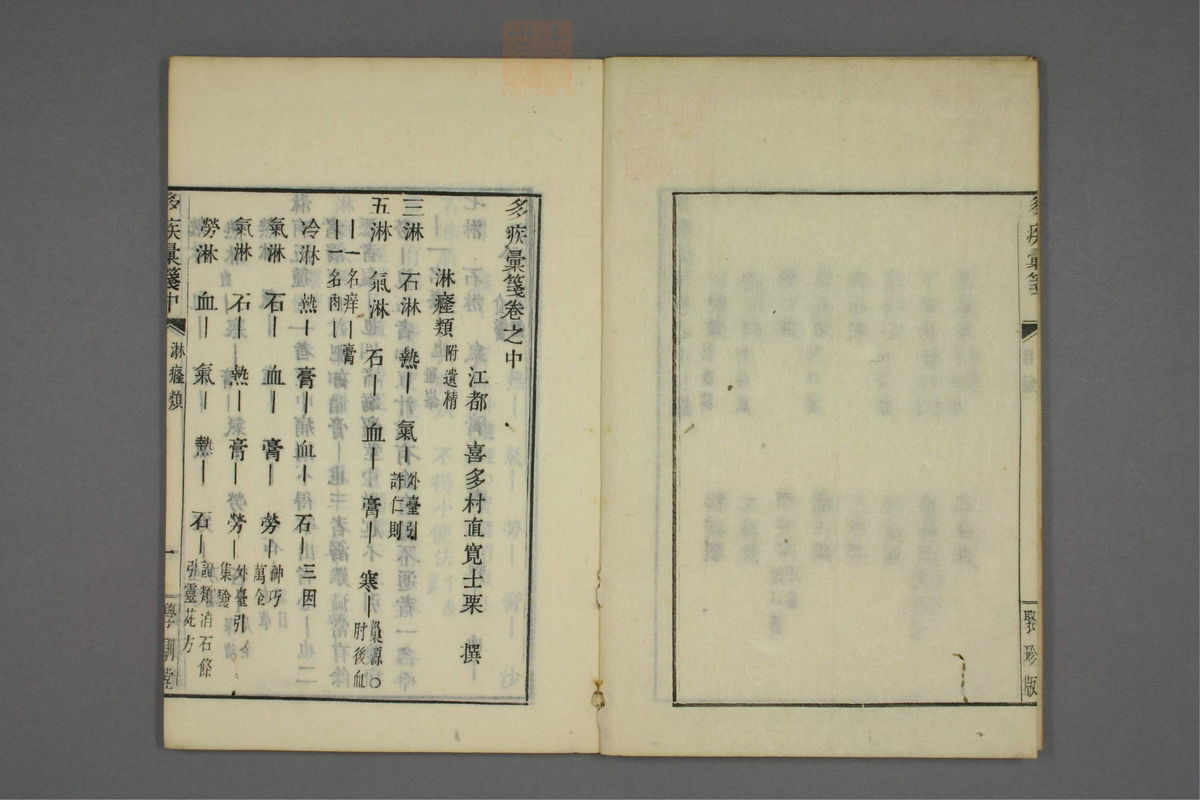 聚珍版
多疾彙箋卷之中
江都 喜多村直寛士栗 撰
淋癃類 附遺精
三淋 石淋 熱― 氣― 外臺引許仁則
五淋 氣淋 石― 血― 膏― 寒― 巢源○肘後血
―一名痒― 膏
―一名肉―
冷淋 熱― 膏― 血― 石― 三因
氣淋 石― 血― 膏― 勞― 神巧萬全
氣淋 石― 熱― 膏― 勞― 外臺引集驗
勞淋 血― 氣― 熱― 石― 證類消石條引靈苑方
多疾彙箋中 淋癃類 一 學訓堂